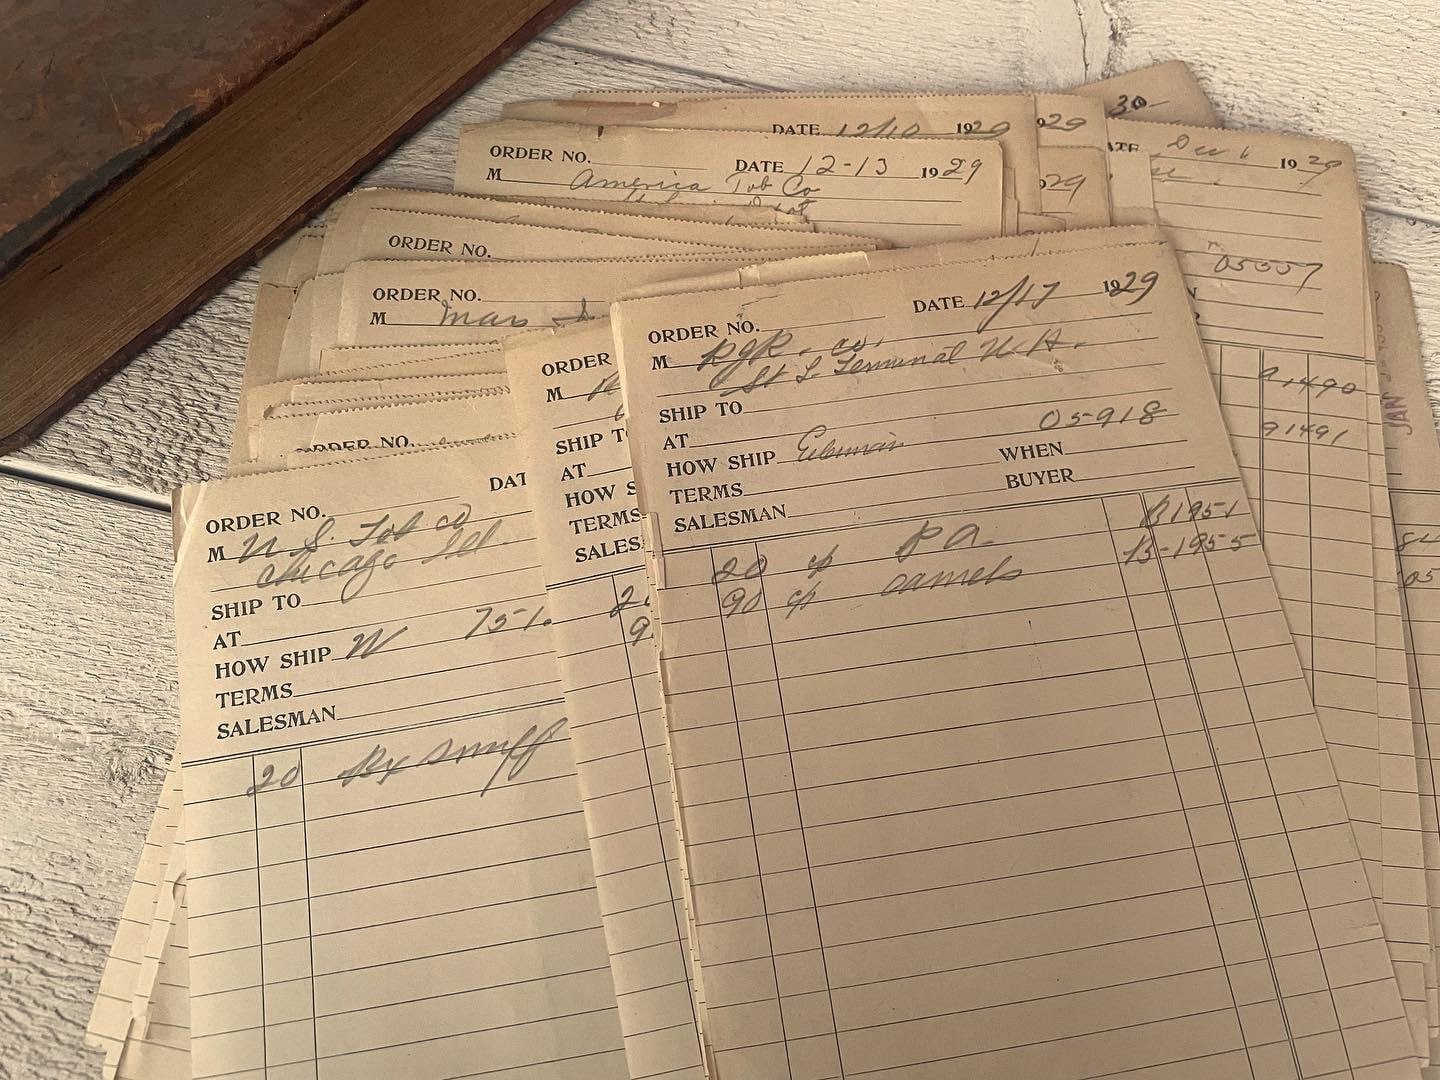 30-
DATE 12/10 1929
1929
ORDER NO. DATE 12-13 1929
M America Tob Co
29
DATE Dec 6 1929
05557
91490
91491
JAN
ORDER NO.
ORDER NO.
M
ORDER NO.
ORDER NO. DATE 12/17 1929
M RJR. co.
St L Terminal W. H.
SHIP TO
AT 05-918
HOW SHIP WHEN
TERMS BUYER
SALESMAN
20 cs P A. B1951
90 cs Camels B-1955
ORDER
M
SHIP TO
AT
HOW S
TERMS
SALES
2
9
ORDER NO. DAT
M U. S. Tob co
Chicago Ill.
SHIP TO
AT 751.
HOW SHIP W
TERMS
SALESMAN
20 Bx Snuff